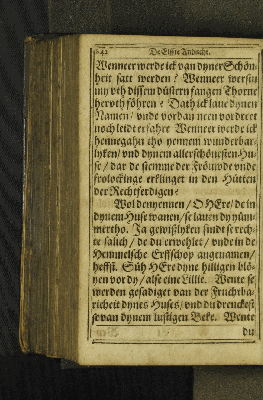 De Elffte Andacht.
Wenneer werde ick van dyner Schön-
heit satt werden? Wenneer werstu
my vth dissem düstern fangen Thorne
heruth föhren? Dath ick laue dynen
Namen / vnde vordan neen vordreet
noch leidt erfahre Wenneer werde ick
hennegahn tho yennem wunderbar-
lyken / vnd dynem allerschönesten Hu-
se / dar de stemme der Fröuwde vnde
frolockinge erklinget in den Hütten
der Rechtferdigen?
Wol den yennen / O HEre / de in
dynem Huse wanen / se lauen dy yüm-
mertho. Ja gewißlyken sindt se rech-
te salich / de du erwehlet / vnde in de
Hemmelsche Erffschop angenamen /
heffst. Süh HEre dyne hilligen blö-
yen vor dy / alse eine Lillie. Wente se
werden gesadiget van der Fruchtba-
richeit dynes Huses / vnd du drenckest
se van dynem lustigen Beke. Wente
du